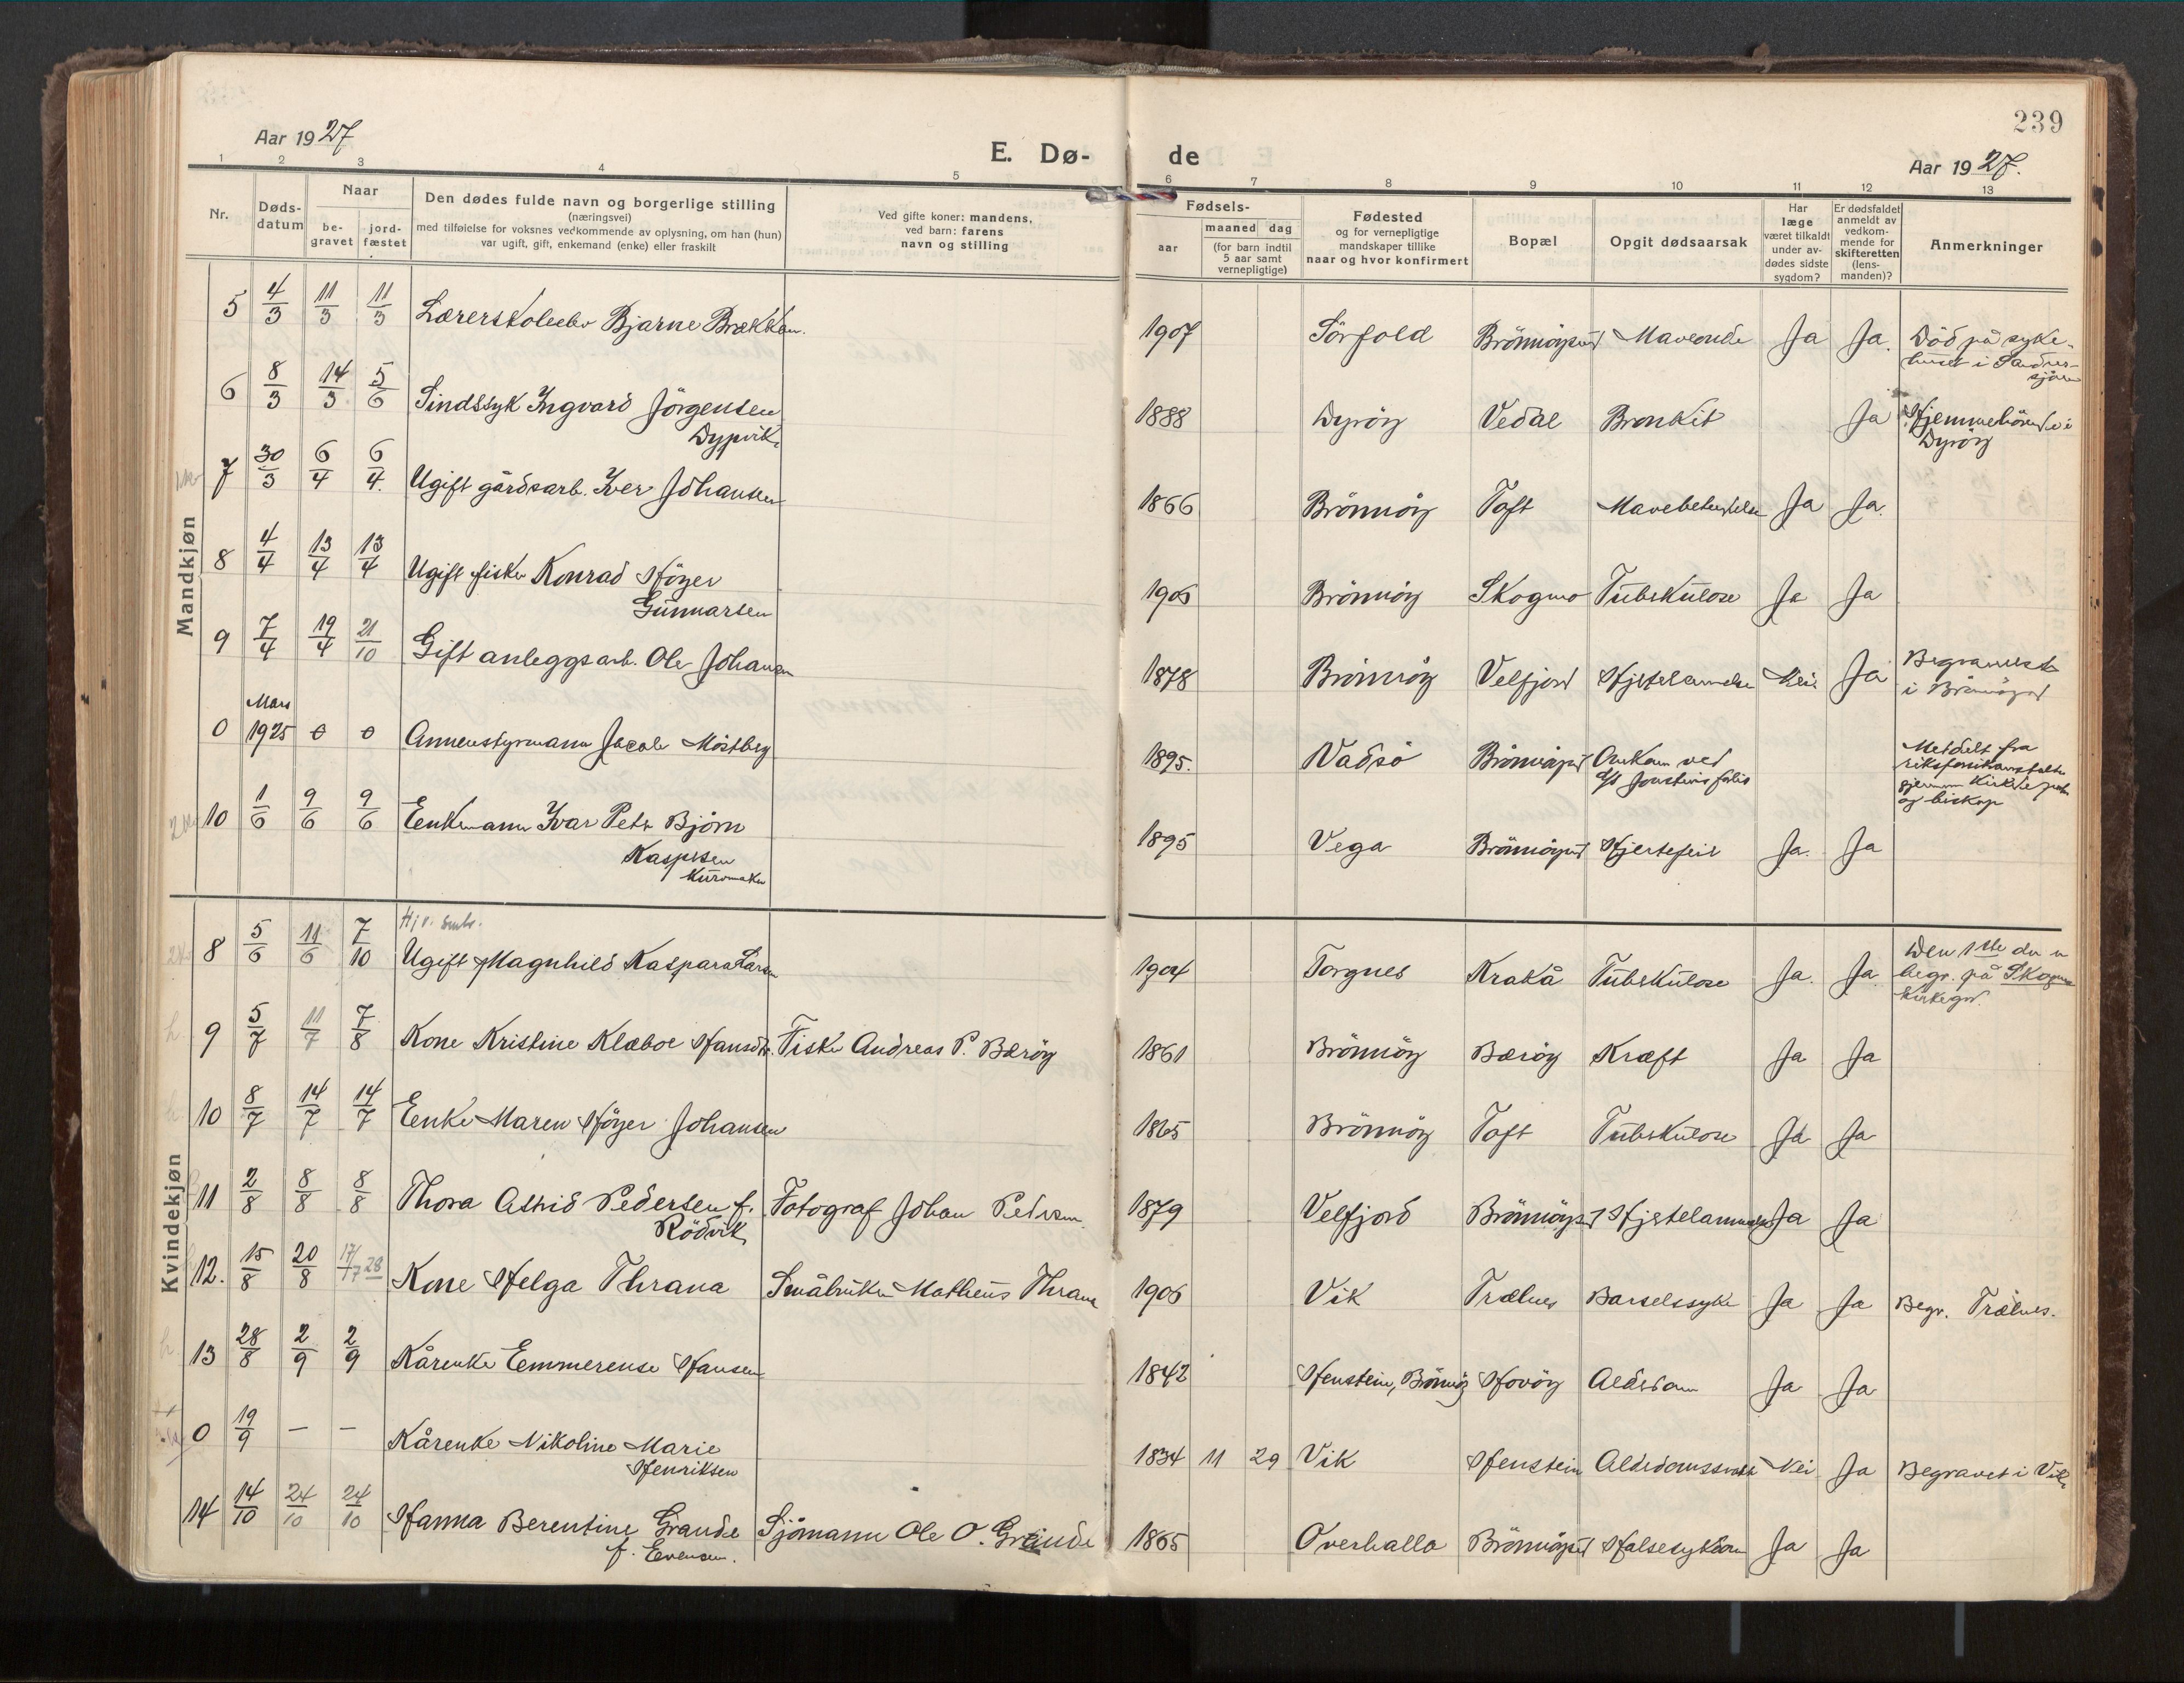 239
Aar 1927
E. Dø- de
Aar 1927.
1 2 3 4 5 6 7 8 9 10 11 12 13
Nr.
Døds-
datum
Naar
be-
gravet
jord-
fæstet
Den dødes fulde navn og borgerlige stilling
(næringsvei)
med tilføielse for voksnes vedkommende av oplysning, om han (hun)
var ugift, gift, enkemand (enke) eller fraskilt
Ved gifte koner: mandens,
ved barn: farens
navn og stilling
Fødsels-
aar
maaned dag
(for barn indtil
5 aar samt
vernepligtige)
Fødested
og for vernepligtige
mandskaper tillike
naar og hvor konfirmert
Bopæl
Opgit dødsaarsak
Har
læge
været tilkaldt
under av-
dødes sidste
sygdom?
Er dødsfaldet
anmeldt av
vedkom-
mende for
skifteretten
(lens-
manden)?
Anmerkninger
Mandkjøn
5 4/3 11/3 11/3 Lærerskoleelev Bjarne Brækken. 1907 Sörfold Brönnöysund Ja Ja. Död på syke-
huset i Sandnes-
sjöen
6 8/3 14/3 5/6 Sindssyk Ingvard Jörgensen 1888 Dyröy Vedal Bronkit Ja Hjemmehörende i
Dypvik. Dyröy
7 30/3 6/4 6/4. Ugift gårdsarb. Iver Johansen 1866 Brönnöy Toft Ja Ja.
8 4/4 13/4 13/4 Ugift fisker Konrad Höyer
Gunnarsen Brönnöy Skogmo Tuberkulose Ja Ja
9 7/4 19/4 21/10 Gift anleggsarb. Ole Johansen 1878 Brönnöy Velfjord Hjertelammelse Nei Ja Begravet
i Brönnöysund
0 Mars
1925 0 0 Annenstyrmann Jacob Mörtberg 1895. Vadsö Brönnöysund Omkom ved
forlis Meddelt fra
riksforsikringsanstalten
gjennem Kirkedep.
og biskop
10 1/6 9/6 9/6 Eenkemann Ivar Peter Björn 1895 Vega Brönnöysund Hjertefeil Ja. Ja
Kaspersen
Kvindekjøn
8 5/6 11/6 7/10 Ugift Magnhild Kaspara Larsen 1904 Torgnes Kråkå Tuberkulose Ja. Ja. Den 1ste der er
begr. på Skogmo
Kirkegrd.
9 5/7 11/7 7/8 Kone Kristine Klæboe Hansdtr. Fisker Andreas P. Bæröy 1861 Brönnöy Bæröy Kræft Ja Ja
10 8/7 14/7 14/7 Eenke Maren Höyer Johansen 1865 Brönnöy Toft Tuberkulose Ja Ja
11 2/8 8/8 8/8 Thora Astrid Pedersen f. Fotograf Johan Pedersen. 1879 Velfjord Brönnöysund Hjertelammelse Ja Ja
Rödvik
12. 15/8 20/8 Kone Helga Thrana Småbruker Matheus Thrana Vik Trælnes Barselssyke Ja Ja Begr. Trælnes.
13 28/8 2/9 2/9 Kårenke Eemmerense Hansen 1842 Henstein, Brönnöy Hovöy Alderdom Ja Ja
0 19/9 — — Kårenke Nikoline Marie
Henriksen 1834 11 29 Vik Henstein Alderdomssvakh. Nei Ja Begravet i Vik
14 14/10 24/10 24/10 Hanna Berentine Grande Sjömann Ole O. Grande 1865 Overhalla Brönnöysund Halsesykdom Ja Ja
f. Evensen.